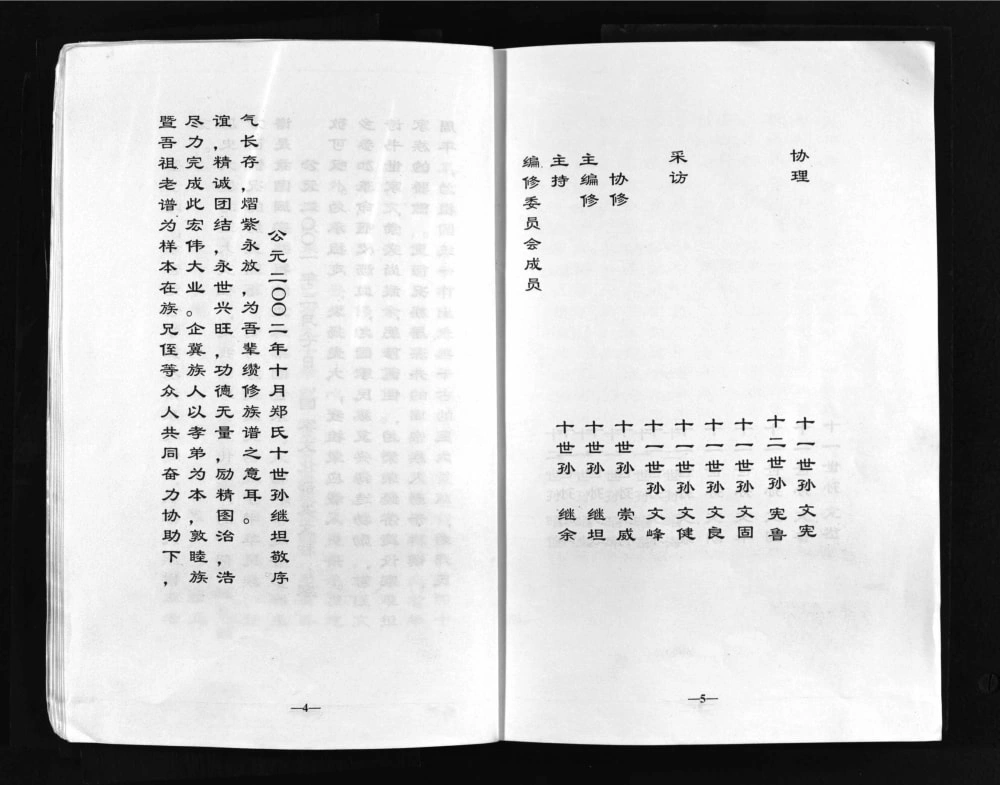 暨吾祖老谱为样本在族兄侄等众人共同奋力协助下，
尽力完成此宏伟大业。企冀族人以孝弟为本，敦睦族
谊，精诚团结，永世兴旺，功德无量，励精图治，浩
气长存，熠紫永放，为吾辈缵修族谱之意耳。
公元二〇〇二年十月郑氏十世孙继坦敬序
—4—
编修委员会成员
主持 十世孙 继余
主编修 十世孙 继坦
协修 十世孙 崇威
十一世孙 文峰
采访 十一世孙 文健
十一世孙 文良
十一世孙 文固
十二世孙 宪鲁
协理 十一世孙 文宪
—5—